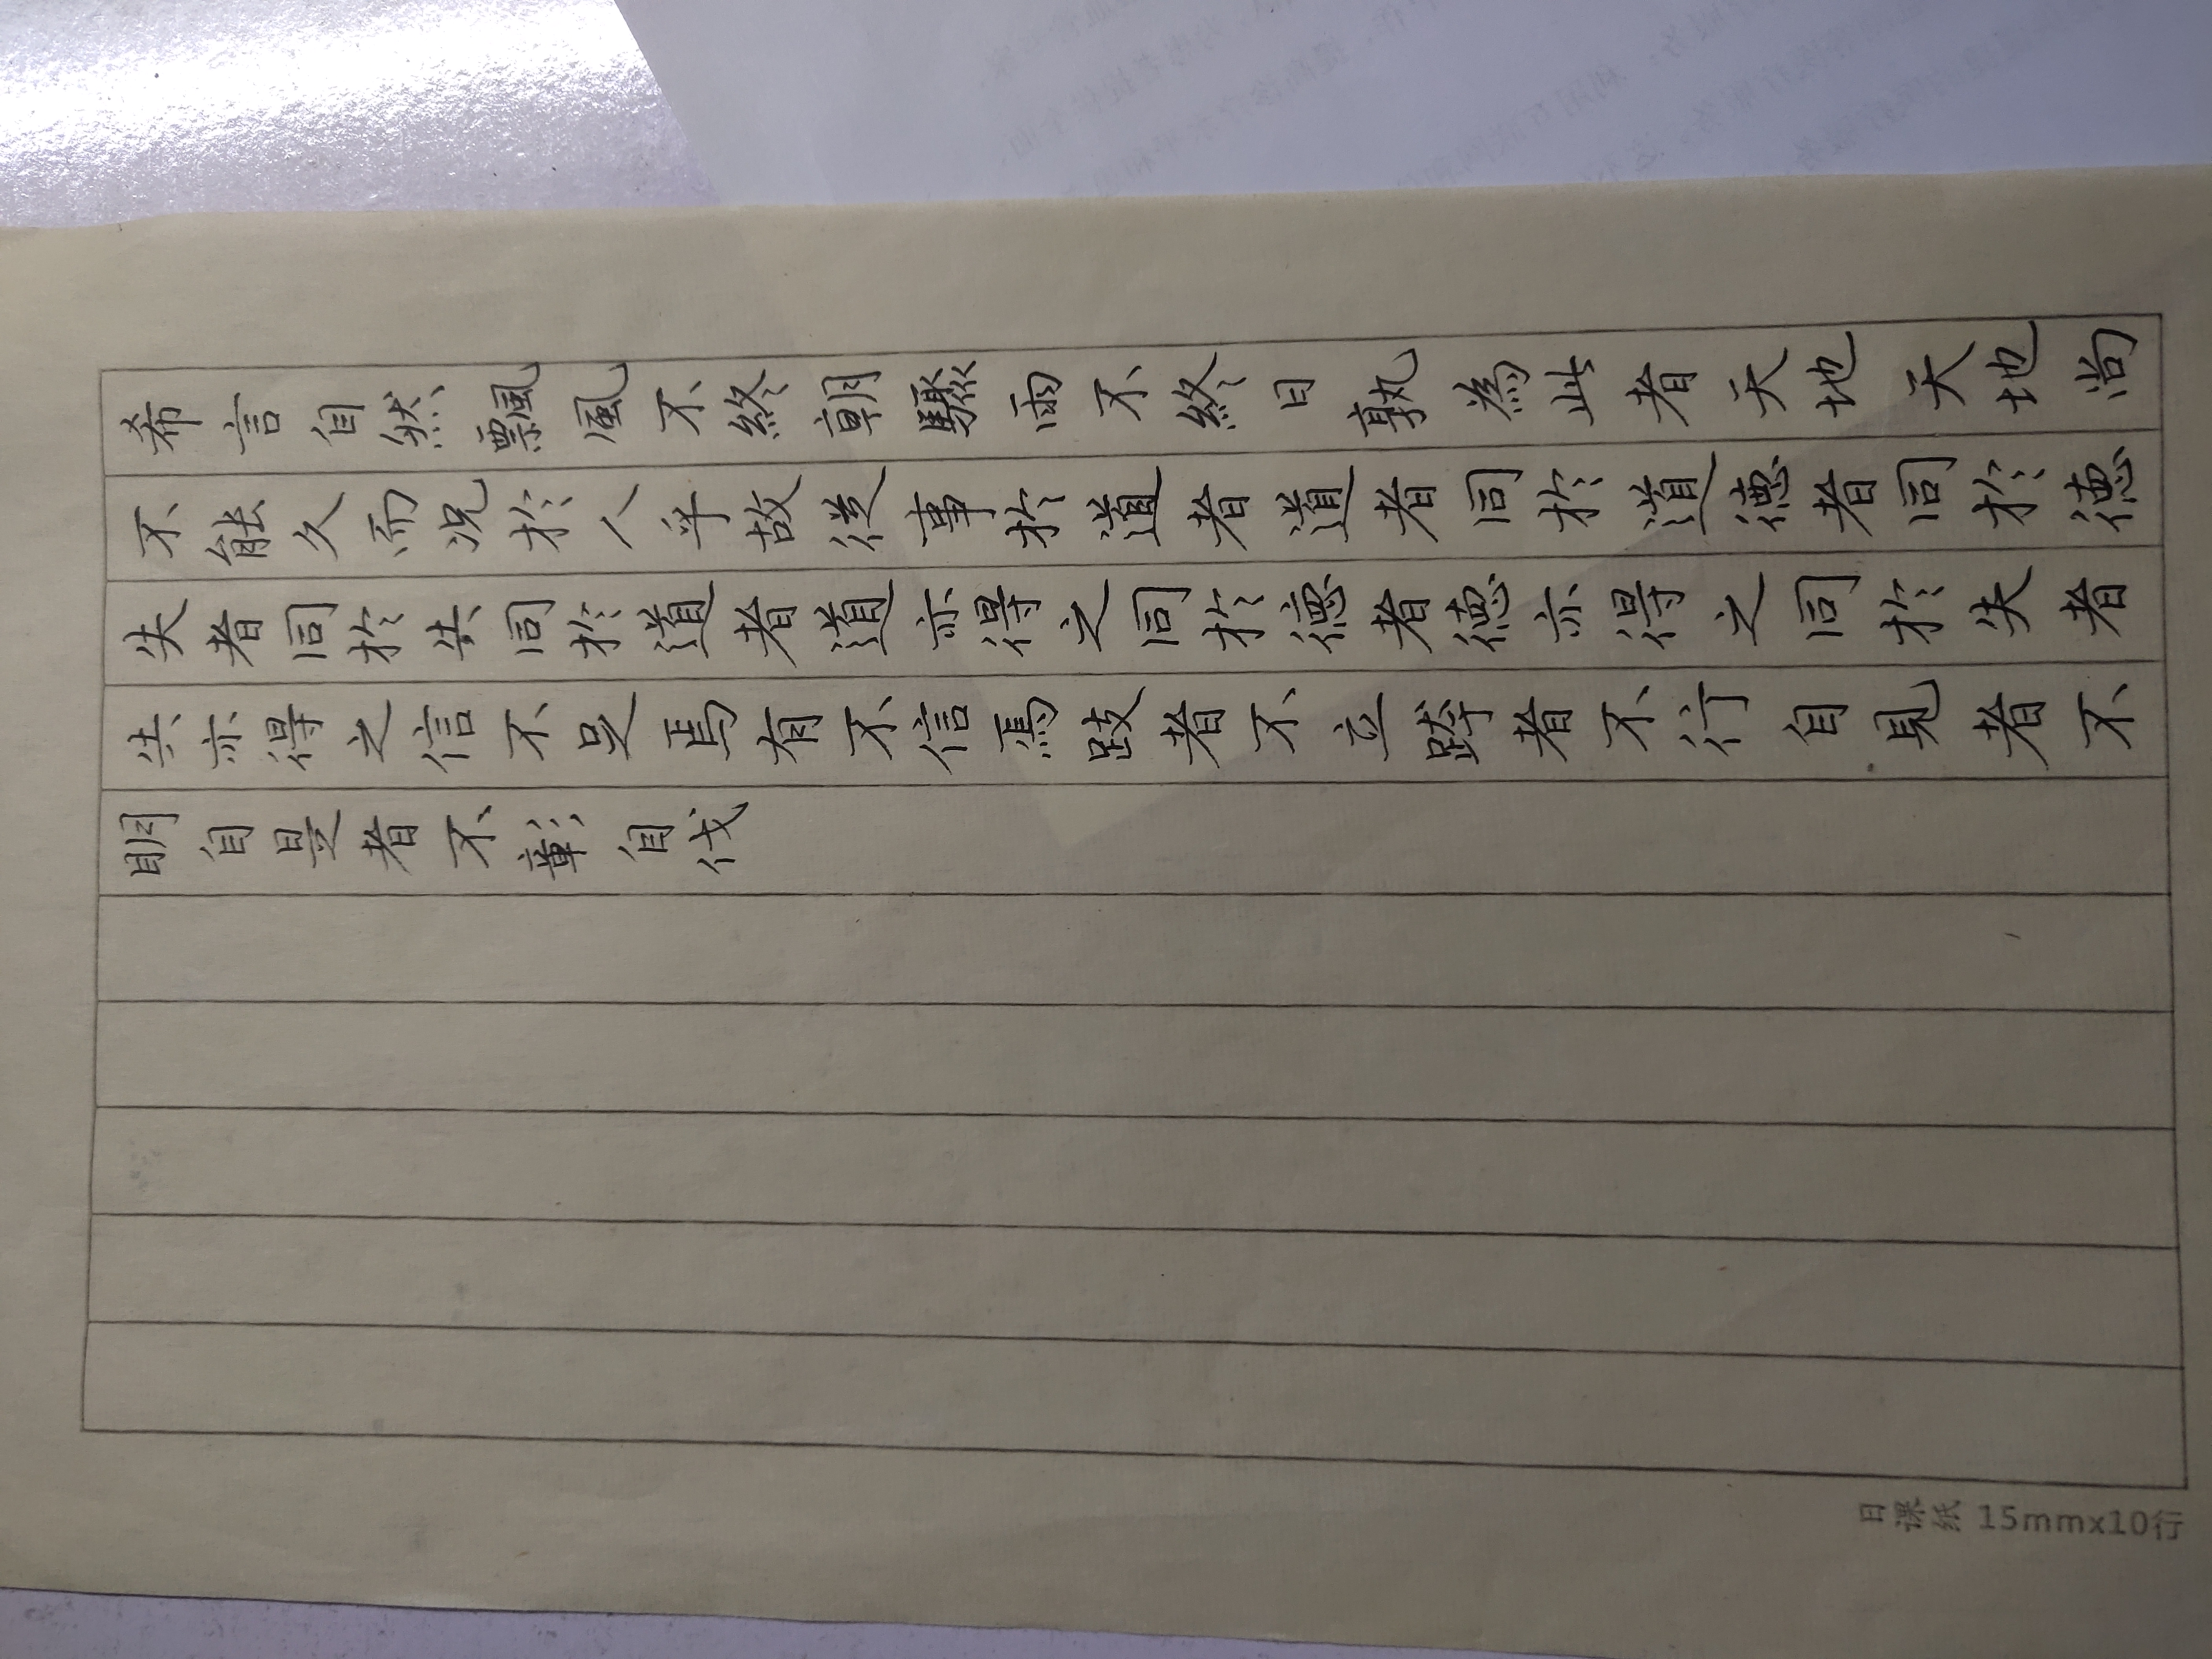 希言自然飄風不終朝驟雨不終日孰為此者天地天地尚
不能久而况於人乎故從事於道者道者同於道德者同於德
失者同於失同於道者道亦得之同於德者德亦得之同於失者
失亦得之信不足焉有不信焉跂者不立跨者不行自見者不
明自是者不彰自伐
日课纸 15mmx10行